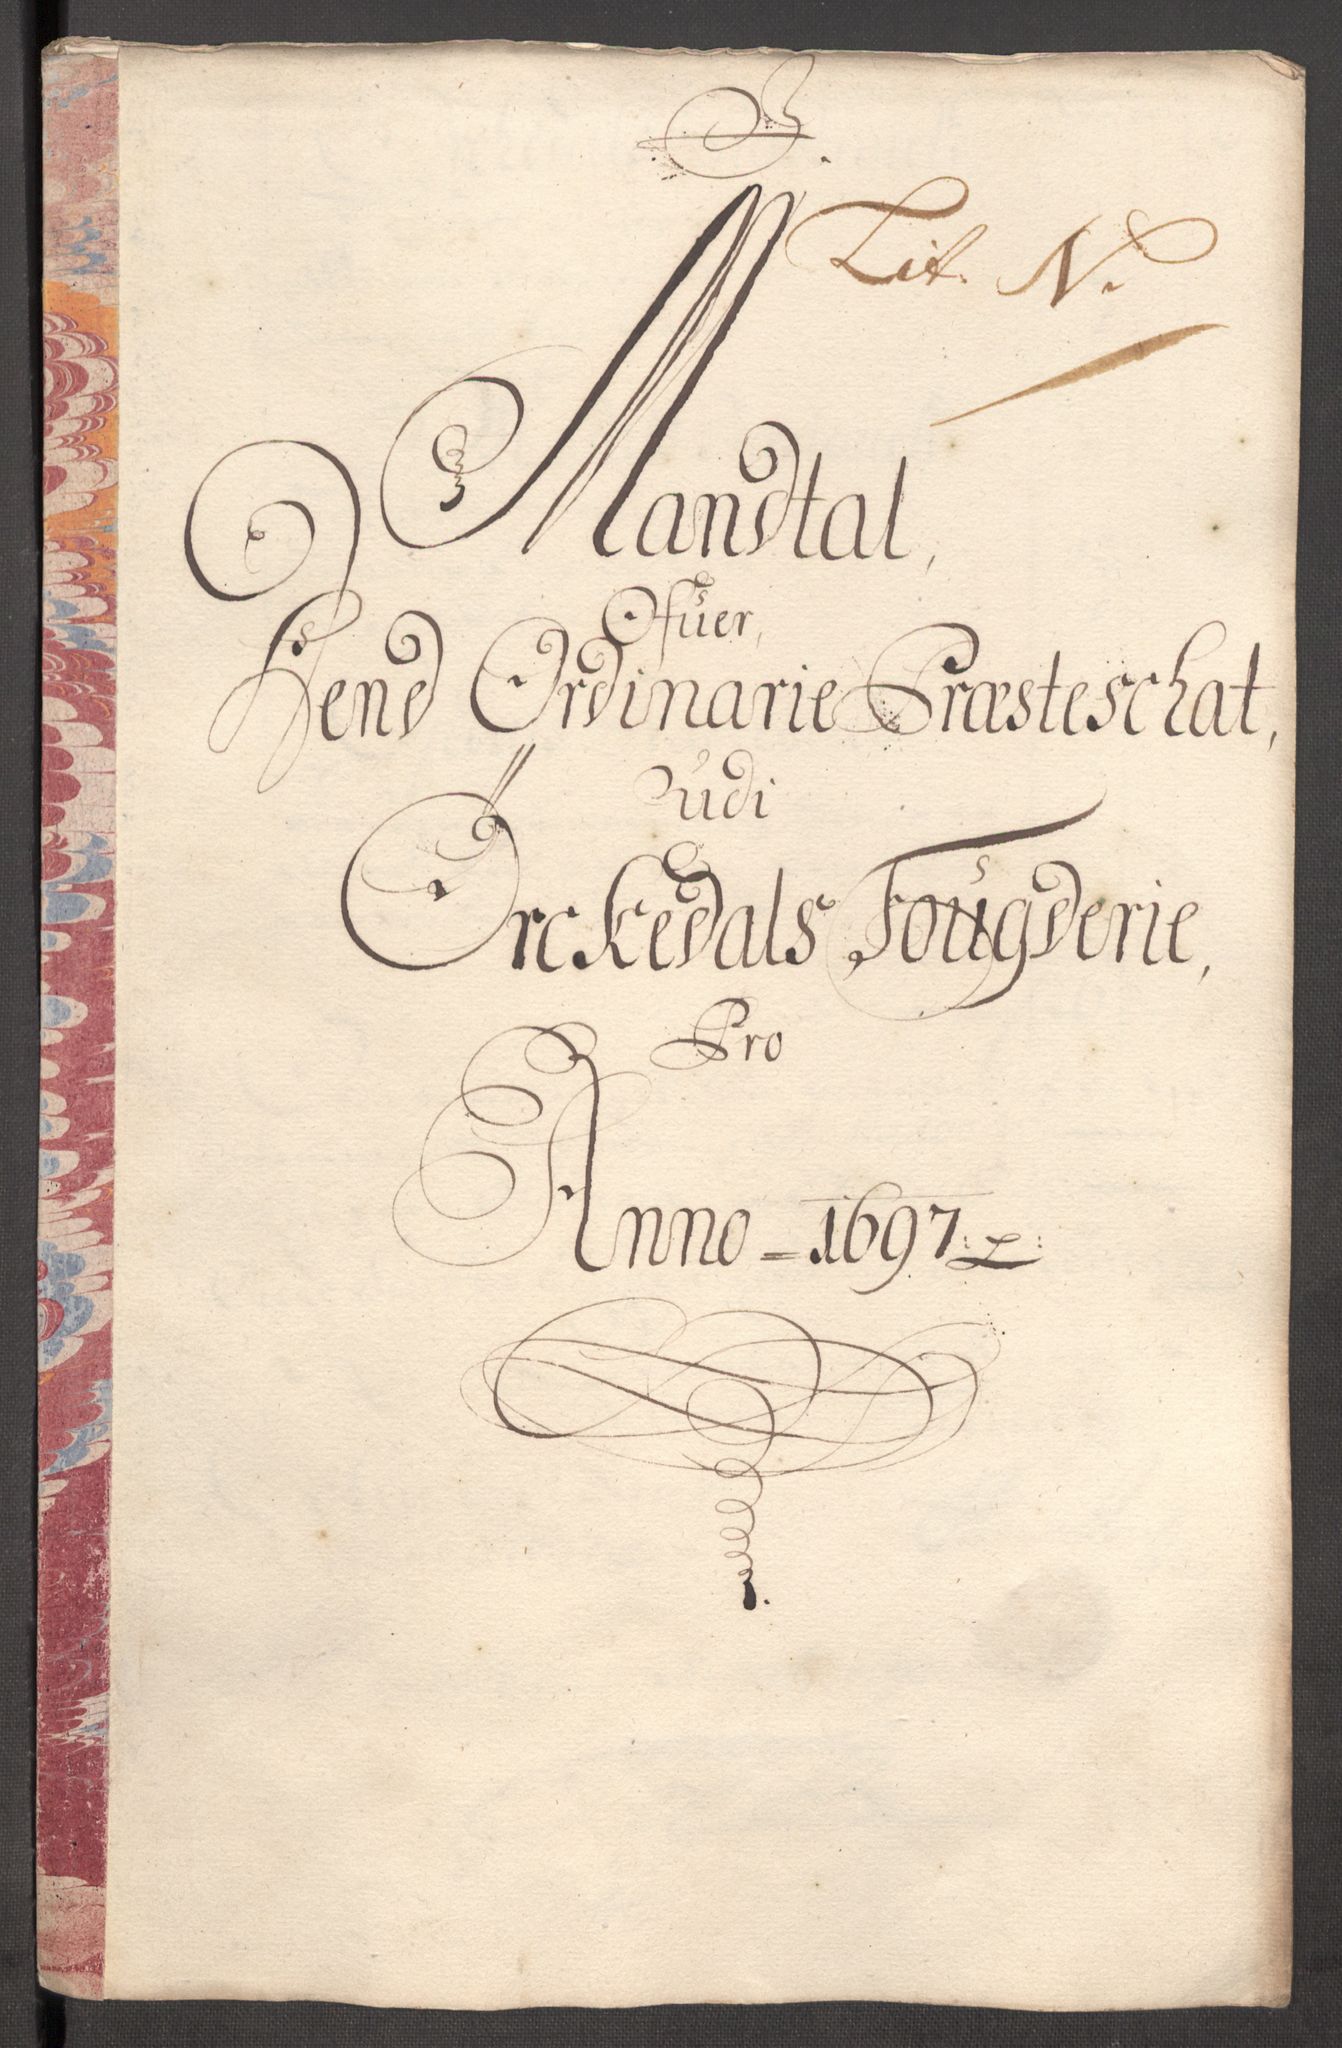 Lit. N.
Mandtal,
Ofuer,
Dend Ordinarie Præsteschat,
Udi
Orckedals Fougderie,
Pro
Anno - 1697